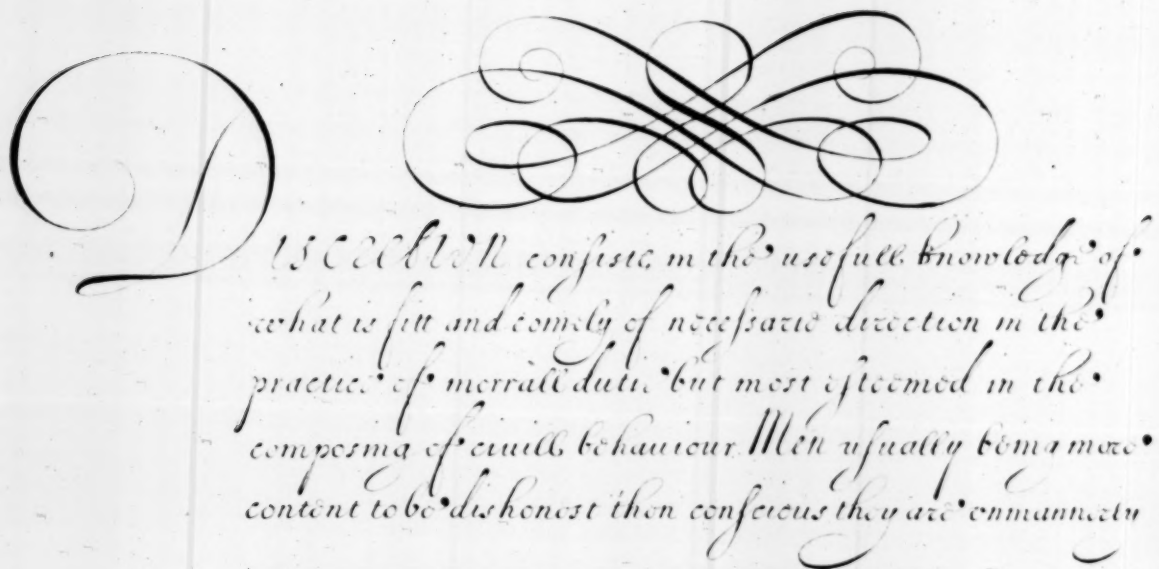 Discretion consists in the usefull knowledge of
what is fitt and comely of necessarie direction in the
practice of morrall dutie but most esteemed in the
composing of civill behauiour Men usually being more
content to be dishonest then conscious they are vnmannerly